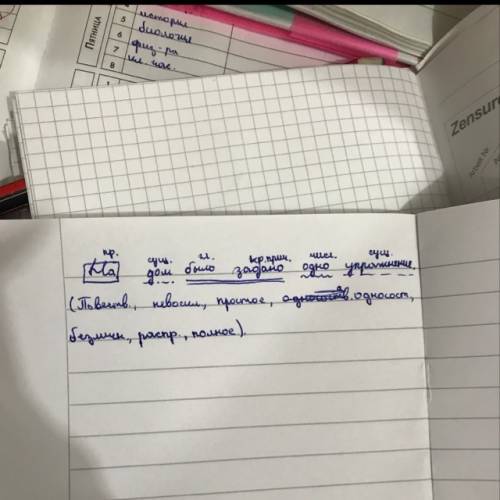 ПЯТНИЦА
5 история
6 биология
7 физ-ра
8 кл. час.
Zensur
Arbeit Nr.
пр. сущ. гл. кр.прич. числ. сущ.
На дом было задано одно упражнение.
(Повеств., невоскл, простое, односост,
безличн, распр., полное).